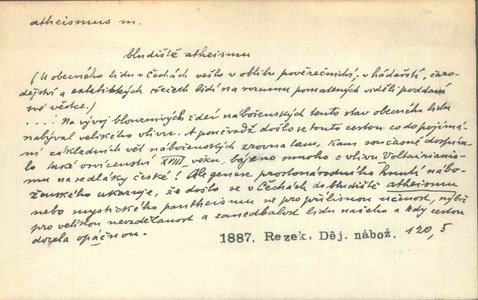 atheismus m.
bludiště atheismu
(U obecného lidu v Čechách vešlo v oblibu pověrečnictví, v hádařství, čaro-
dějství a extatických věcech lidí na rozumu pomatených viděli poddaní
své věštce.)
....: Na vývoj blouznivých ideí náboženských tento stav obecného lidu
nabýval velikého vlivu. A poněvadž došlo se touto cestou co do pojímá-
ní základních vět náboženských zrovna tam, kam současně dospíva-
lo luké osvícenství XVIII. věku, bájeno mnoho o vlivu Voltairianis-
mu na sedláky české! Ale genese prostonárodního hnutí nábo-
ženského ukazuje, že došlo se v Čechách do bludiště atheismu
nebo mystického pantheismu ne pro přílišnou učenost, nýbrž
pro velikou nevzdělanost a zanedbalost lidu našeho a kdy cestou
docela opáčnou.
1887. Rezek. Děj. nábož. 120,5